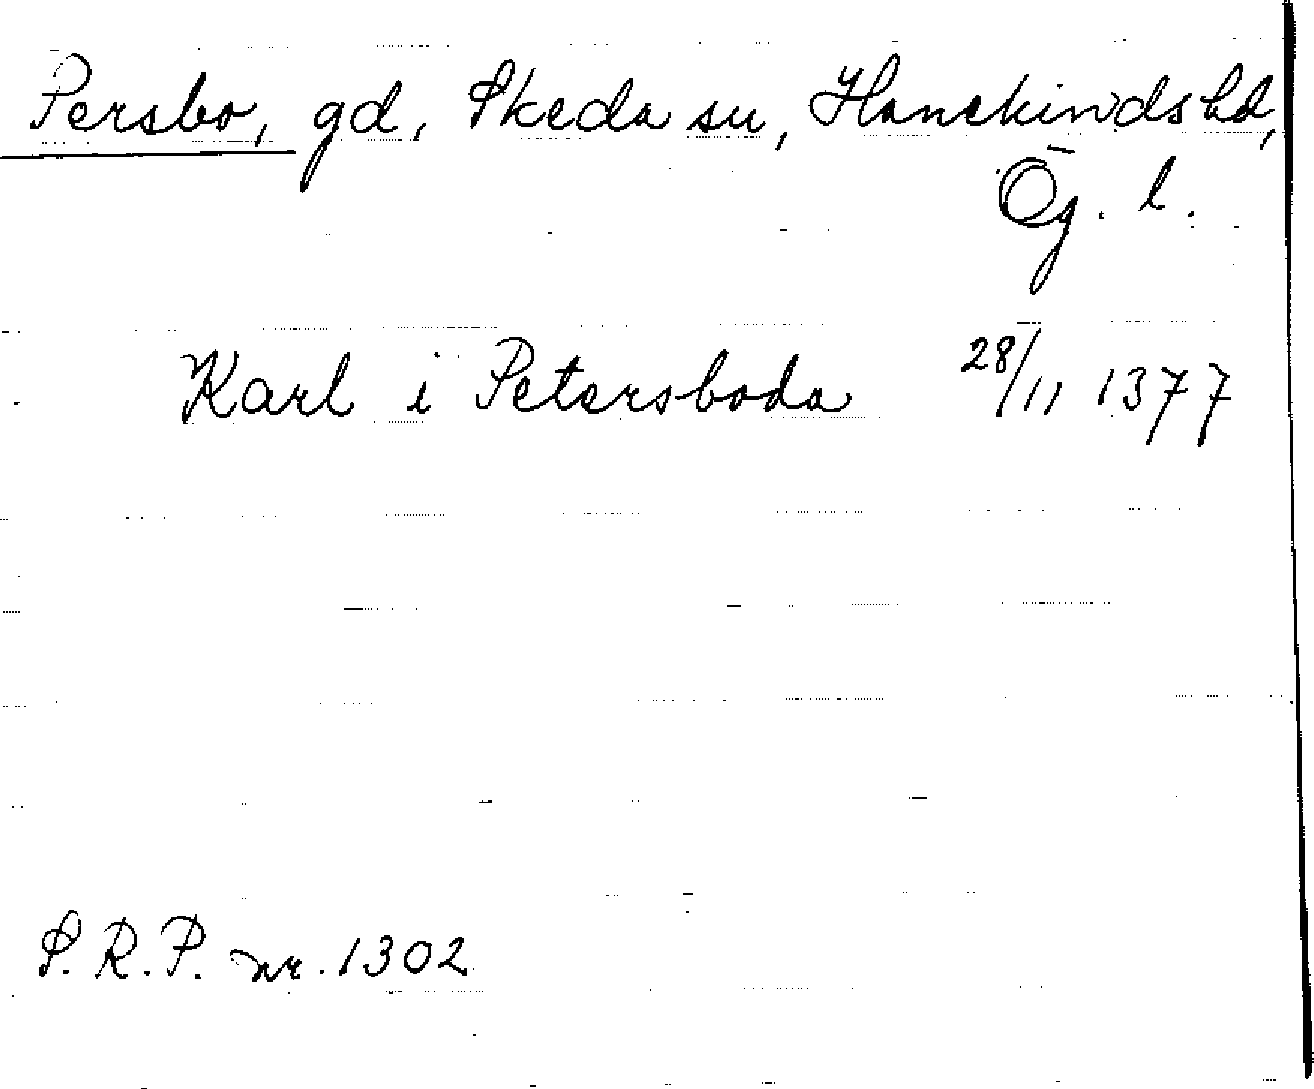 Persbo, gd, Skeda sn, Hanekinds hd,
Ög. l.
Karl i Petersboda 28/11 1377
S.R.P. nr. 1302